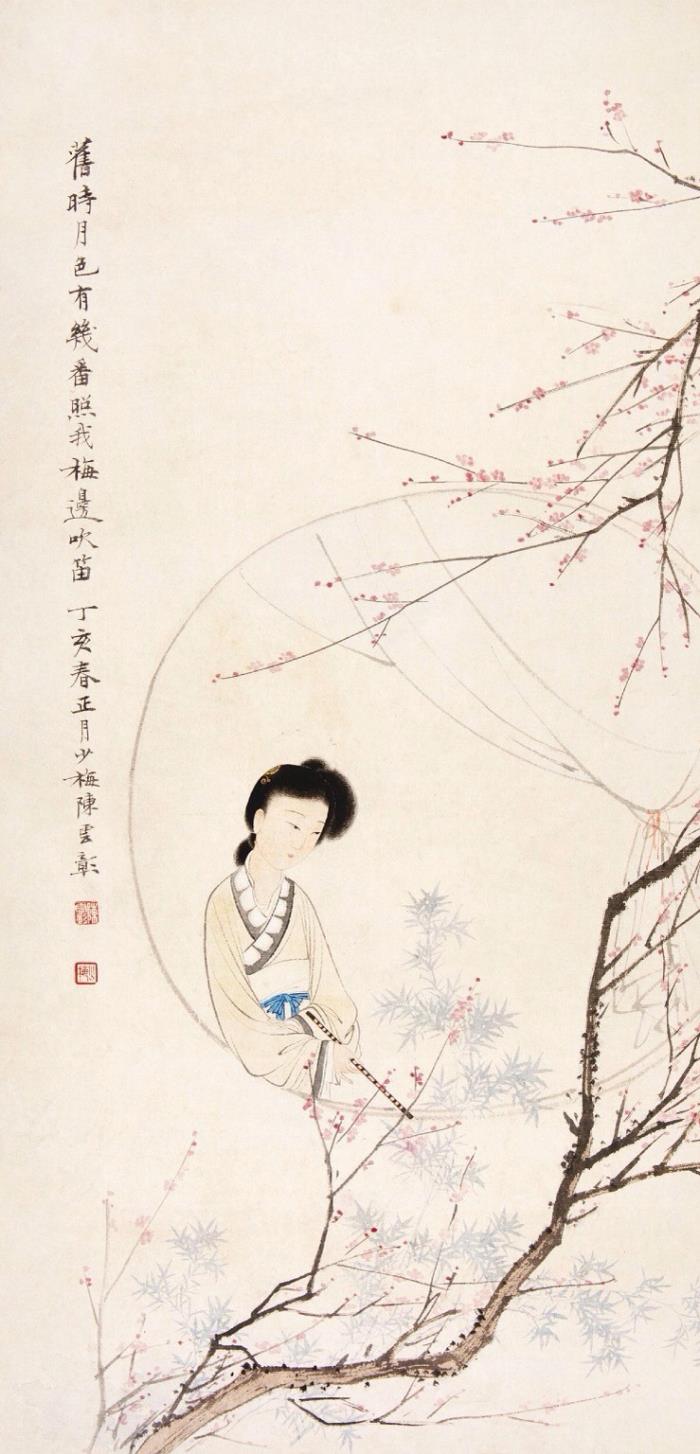 舊時月色有幾番照我梅邊吹笛 丁亥春正月少梅陳雲彰